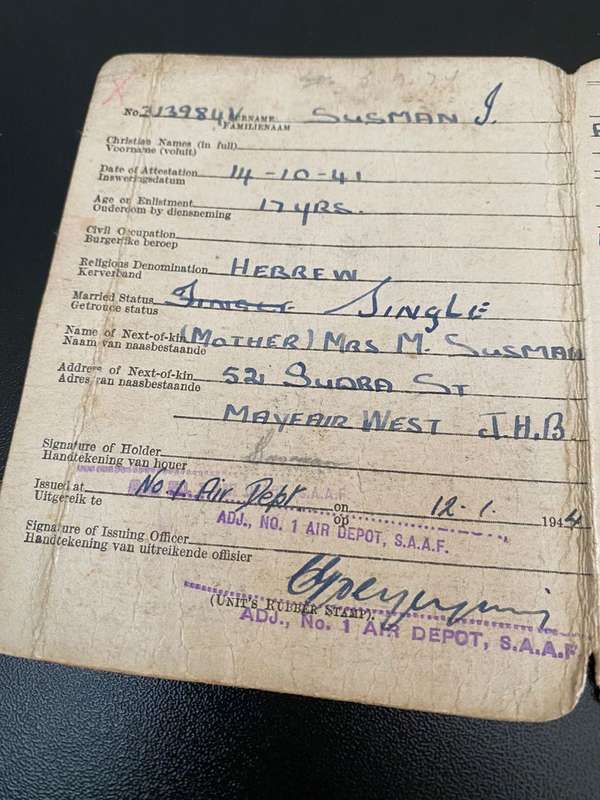 No. 313984V SURNAME SUSMAN J.
FAMILIENAAM
Christian Names (in full)
Voorname (voluit)
Date of Attestation 14-10-41
Insweringsdatum
Age on Enlistment 17 YRS.
Ouderdom by diensneming
Civil Occupation
Burgerlike beroep
Religious Denomination HEBREW
Kerverband
Married Status SINGLE SINGLE
Getroude status
Name of Next-of-kin (MOTHER) MRS M. SUSMAN
Naam van naasbestaande
Address of Next-of-kin 52 ST
Adres van naasbestaande
MAYFAIR WEST J.H.B
Signature of Holder Susman
Handtekening van houer
Issued at No 1 Air Dept on 12.1. 1944
Uitgereik te op
S.A.A.F.
ADJ., NO. 1 AIR DEPOT, S.A.A.F.
Signature of Issuing Officer
Handtekening van uitreikende offisier
(UNIT'S RUBBER STAMP).
ADJ., No. 1 AIR DEPOT, S.A.A.F